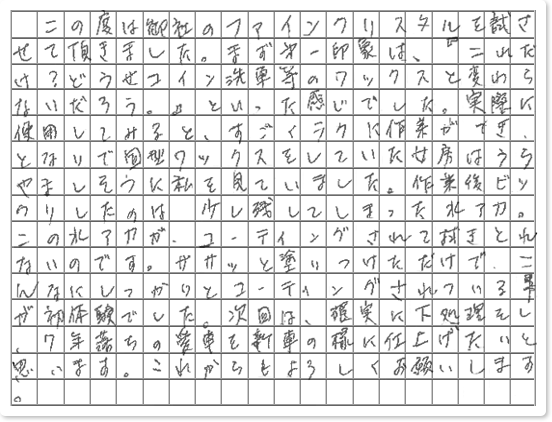 この度は御社のファインクリスタルを試さ
せて頂きました。まず第一印象は、『これだ
け?どうせコイン洗車等のワックスと変わら
ないだろう。』といった感じでした。実際に
使用してみると、すごくラクに作業ができ、
となりで固型ワックスをしていた女房はうら
やましそうに私を見ていました。作業後ビッ
クリしたのは、少し残してしまった水アカ。
この水アカが、コーティングされて拭きとれ
ないのです。ササッと塗りつけただけで、こ
んなにしっかりとコーティングされている事
が初体験でした。次回は、確実に下処理をし
、7年落ちの愛車を新車の様に仕上げたいと
思います。これからもよろしくお願いします
。